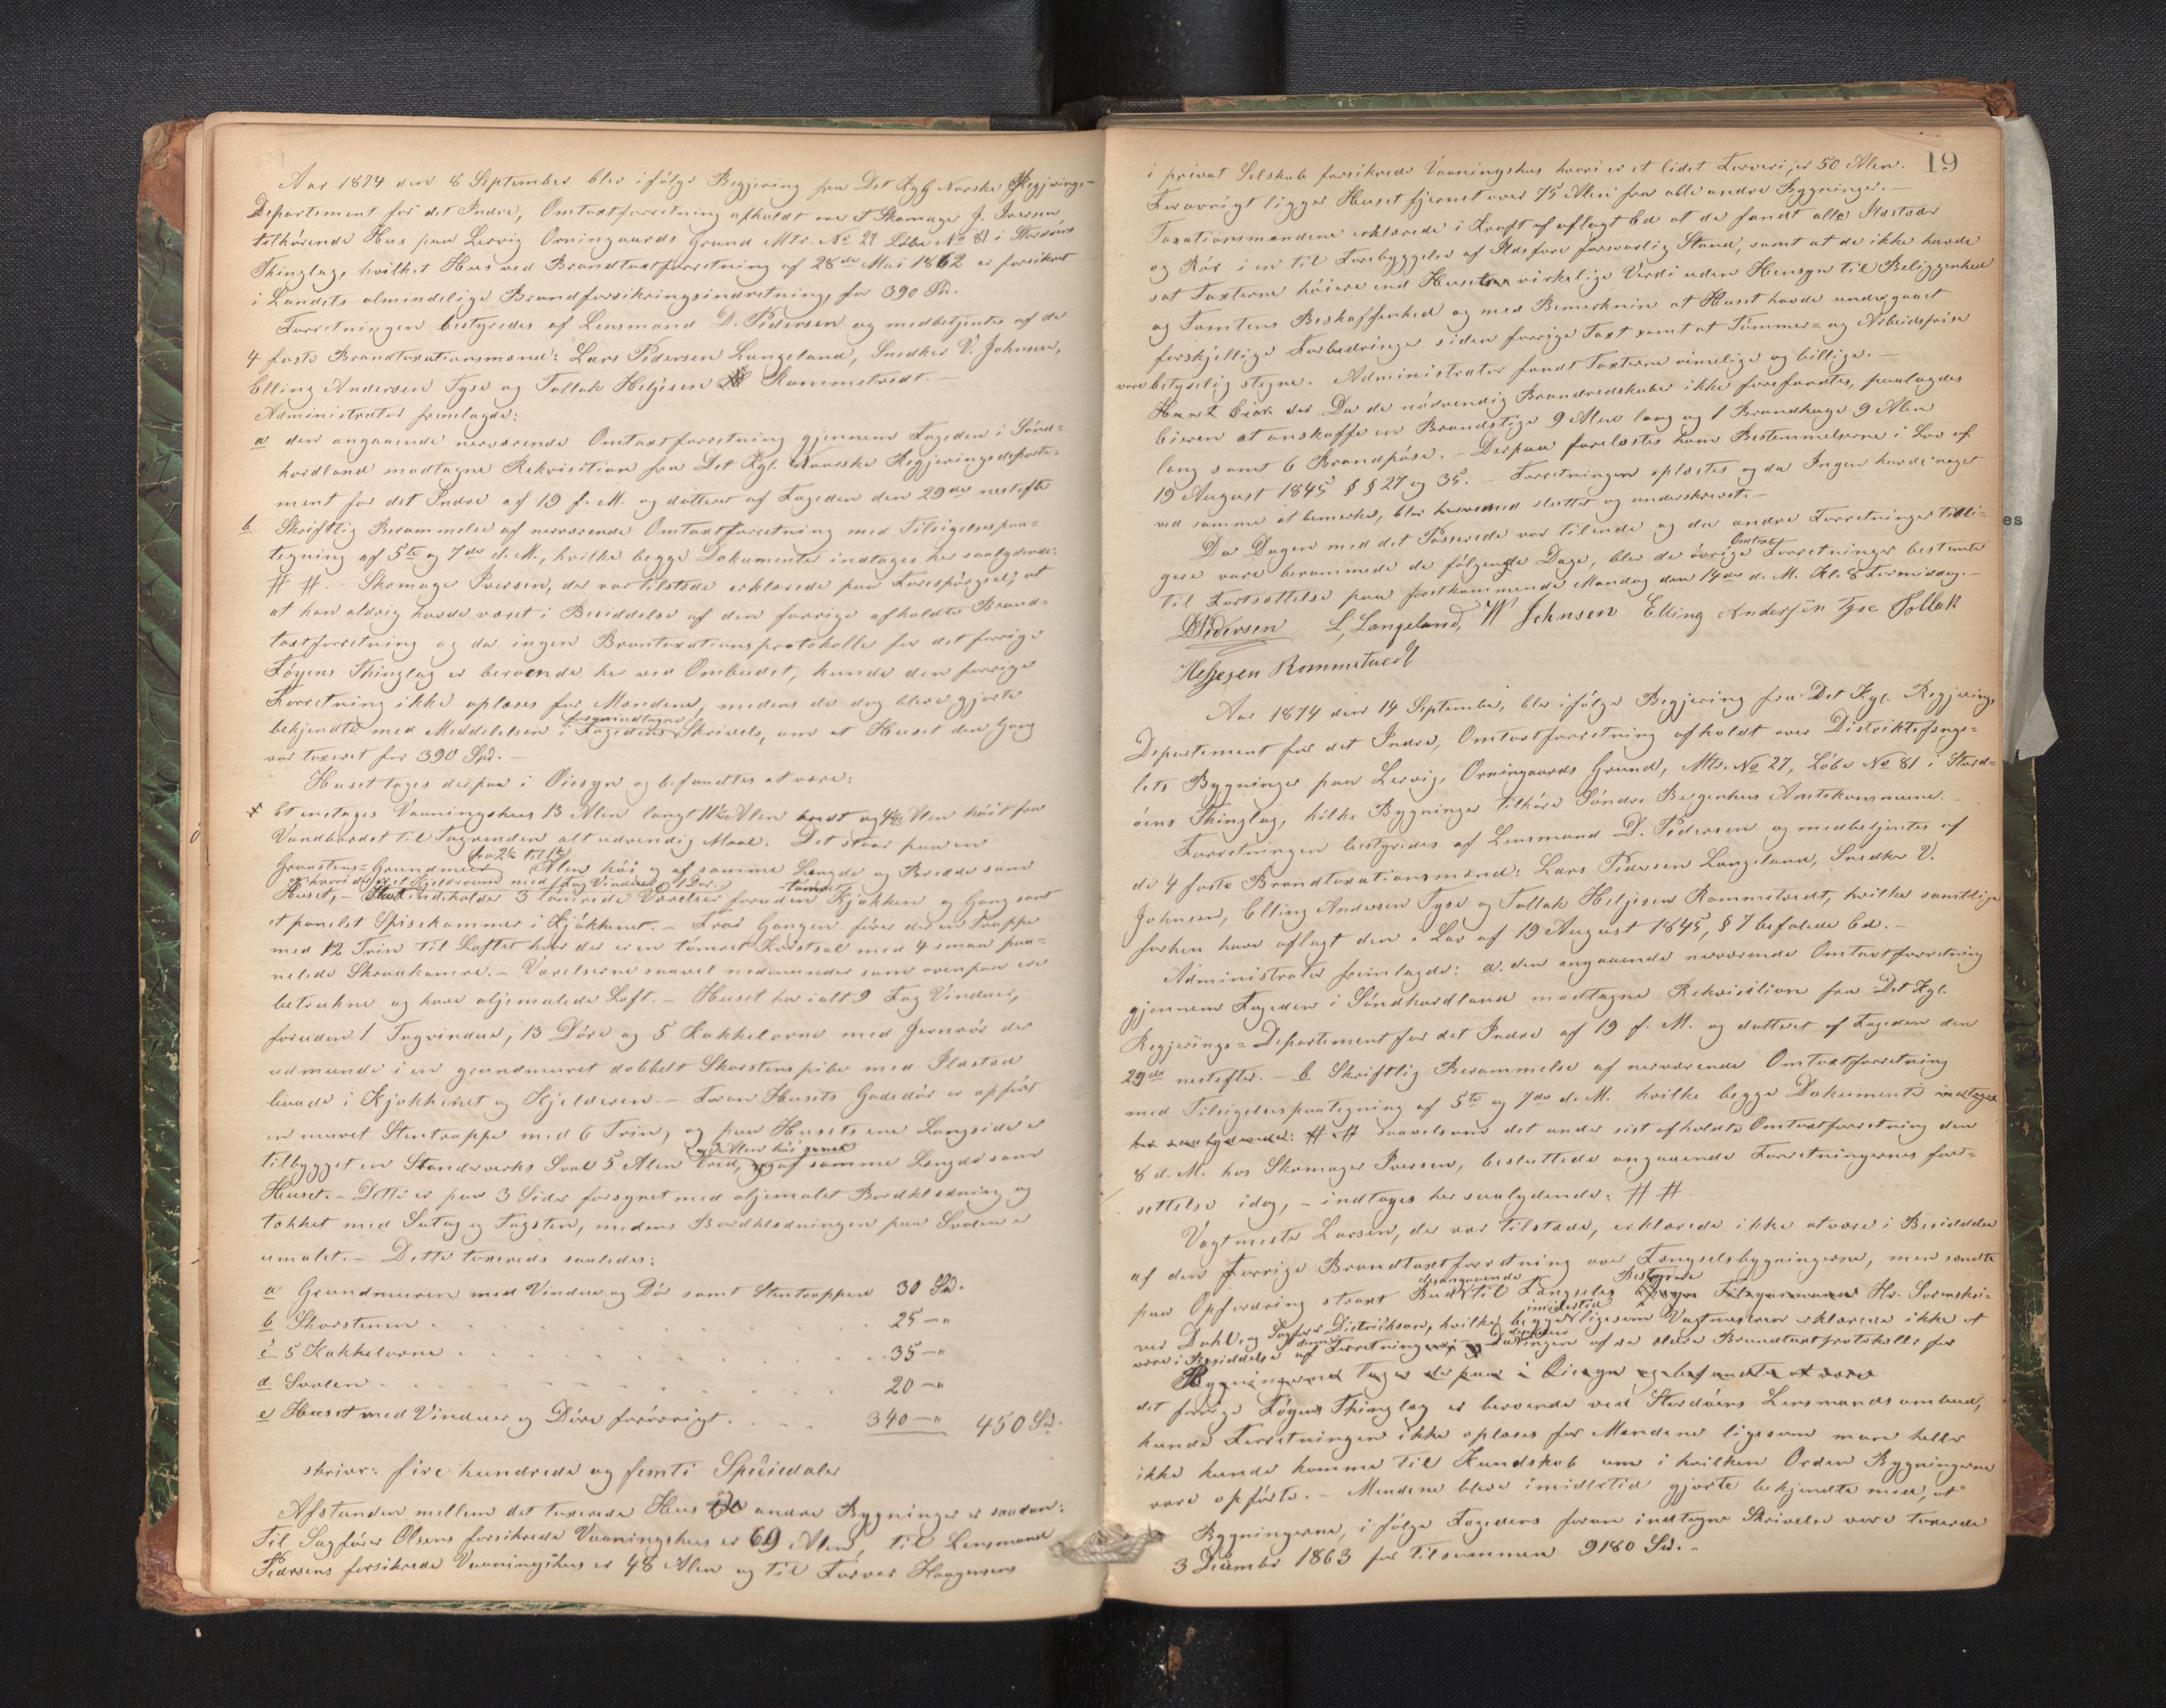 Aar 1874 den 8 September blev ifølge Begjering fra Det Kgl. Norske Regjerings-
Departement for det Indre, Omtaxtforretning afholdt over et Skomager J. Iversen
tilhørende Hus paa Lervig Orningaards Grund Mtr. No 27 Løbe No 81 i Stordøens
Thinglag, hvilket Hus ved Brandtaxtforretning af 28de Mai 1862 er forsikret
i Landets almindelige Brandforsikringsindretning for 390 Sp.
Forretningen bestyredes af Lensmand D. Pedersen og medbetjentes af de
4 faste Brandtaxationsmænd: Lars Pedersen Langeland, Snedker V. Johnsen,
Elling Andersen Tyse og Tollak Heljesen Rommetvedt.
Administrator fremlagde:
a den angaaende nærværende Omtaxtforretning gjennem Fogden i Sønd-
hordland modtagne Rekvisition fra Det Kgl. Norske Regjeringsdeparte-
ment for det Indre af 19 f. M. og datteret af Fogeden den 29de nestefter
b Skriftlig Berammelse af nærværende Omtaxtforretning med Tilsigelsespaa-
tegning af 5te og 7de d. M., hvilke begge Dokumenter indtages her saalydende:
# #. Skomager Iversen, der var tilstede erklærede paa Forespørgsel, at
at han aldrig havde været i Besiddelse af den forrige afholdte Brand-
taxtforretning og da ingen Brantaxationsprotokolle for det forrige
Føyens Thinglag er beroende her ved Ombudet, kunde den forrige
Forretning ikke oplæses for Mændene, medens de dog bleve gjorte
bekjendte med Meddelelsen i Fogedens foranindtagne Skrivelse, om at Huset den Gang
var taxeret for 390 Spd.
Huset toges derpaa i Øiesyn og befandtes at være:
Et enetages Vaaningshus 13 Alen langt 11½ Alen bredt og 4½ Alen høit fra
Vandbordet til Tagrenden alt udvendig Maal. Det staar paa en
Graastens-Grundmuur fra 2½ til 1½ Alen høi og af samme Længde og Bredde som
Huset, og hvori der er et Kjelderrum med 1 Fag Vinduer & 1 Dør. - Huset indeholder 3 tømrede Værelser foruden tømret Kjøkken og Gang samt
et panelet Spisekammer i Kjøkkenet. - Fra Gangen fører der en Trappe
med 12 Trin til Loftet hvor der er en tømret Kvistsal med 4 smaa paa-
nelede Skraakamre. - Værelserne saavel nedenunder som ovenpaa ere
betrukne og have oljemalede Loft. - Huset har ialt 9 Fag Vinduer,
foruden 1 Tagvindue, 13 Døre og 5 Kakkelovne med Jernrør der
udmunde i en grundmuret dobbelt Skorstenspibe med Ilastæd
baade i Kjøkkenet og Kjelderen. - Foran Husets Gadedør er opført
en muret Stentrappe med 6 Trin, og paa Husets ene Langside er
tilbygget en Standværks Sval 5 Alen bred, og 3 Alen høi og af samme Længde som
Huset. - Dette er paa 3 Sider forsynet med oljemalet Bordklædning og
tækket med Sutag og Tagsten, medens Bordklædningen paa Svalen er
umalet. - Dette taxereds saaledes:
a Grundmuren med Vindue og Dør samt Stentrappen 30 Sd.
b Skorstenen . . . . . 25 — "
c 5 Kakkelovne . . . . . 35 — "
d Svalen . . . . . 20 — "
e Huset med Vinduer og Døre forøvrigt . . . . 340 — " 450 Sd.
skriver: fire hundrede og femti Speciedaler
Afstanden mellem det taxerede Hus og andre Bygninger er saadan:
Til Sagfører Olsens forsikrede Vaaningshus er 69 Alen, til Lensmand
Pedersens forsikrede Vaaningshus er 48 Alen og til Farver Haagensens
19
i privat Selskab forsikrede Vaaningshus hvori er et lidet Farveri, er 50 Alen.
Forøvrigt ligger Huset fjernet over 75 Alen fra alle andre Bygninger. -
Taxationsmændene erklærede i Kraft af aflagt Ed at de fandt alle Ilastæder
og Rør i en til Forebyggelse af Ildsfare forsvarlig Stand, samt at de ikke havde
sat Taxterne høiere end Husets virkelige Værdi uden Hensyn til Beliggenhed
og Tomtens Beskaffenhed og med Bemerknin at Huset havde undergaaet
forskjellige Forbedringer siden forrige Taxt samt at Tømmer- og Arbeidsprise
vare betydelig stegne. Administrator fandt Taxterne rimelige og billige. -
Da de nødvendig Brandredskaber ikke forefandtes, paalagdes
Eieren at anskaffe en Brandstige 9 Alen lang og 1 Brandhage 9 Alen
lang samt 6 Brandpøse. - Derpaa forelæstes ham Bestemmelserne i Lov af
19 August 1845 § § 27 og 35. - Forretningen oplæstes og da Ingen havde noget
ved samme at bemerke, blev hermed sluttet og underskrevet. -
Da Dagen med det Passerede var tilende og da andre Forretninger tidli-
gere vare berammede de følgende Dage, blev de øvrige Omtaxt Forretninger bestemte
til Fortsættelse paa førstkommende Mandag den 14de d. M. Kl. 8 Formiddag. -
D Pedersen L, Langeland, W Johnsen Elling Andersen Tyse Tollak
Heljesen Rommetvedt
Aar 1874 den 14 September, blev ifølge Begjering fra Det Kgl. Regjerings
Departement for det Indre, Omtaxtforretning afholdt over Distriktsfængs-
lets Bygninger paa Lervig, Orningaards Grund, Mtr. No 27, Løbe No 81 i Stord-
øens Thinglag, hvilke Bygninger tilhøre Søndre Bergenhus Amtskommune.
Forretningen bestyredes af Lensmand D. Pedersen og medbetjentes af
de 4 faste Brandtaxationsmænd: Lars Pedersen Langeland, Snedker V.
Johnsen, Elling Andersen Tyse og Tollak Heljesen Rommetvedt, hvilke samtlige
forhen have aflagt den i Lov af 19 August 1845, § 7 befalede Ed. -
Administrator fremlagde: a. den angaaende nærværende Omtaxtforretning
gjennem Fogeden i Søndhordland modtagne Rekvisition fra Det Kgl.
Regjerings-Departement for det Indre af 19 f. M. og datteret af Fogeden den
29de nestefter. - b Skriftlig Berammelse af nærværende Omtaxtforretning
med Tilsigelsespaategning af 5te og 7de d. M. hvilke begge Dokumenter indtages
her saalydende: # # saavelsom det under sist afholdte Omtaxtforretning den
8 d. M. hos Skomager Iversen, besluttede angaaende Forretningernes fort-
sættelse idag, - indtages her saalydende: # #.
Vagtmester Larsen, der var tilstede, erklærede ikke at være i Besiddelse
af den forrige Brandtaxtforretning over Fængselsbygningerne, men sendte
paa Opfordring strax Bud desangaaende til Fængslets Bestyrere Hr. Sorenskri-
ver Dahl og Sagfører Dietrichson, hvilke begge imidlertid ligesom Vagtmesteren erklærede ikke at
være i Besiddelse af denne Forretning og da ingen af de ældre Brandtaxtprotokolle for
Bygningerne toges derpaa i Øiesyn og befandtes at være
det forrige Føyens Thinglag er beroende ved Stordøens Lensmandsombud,
kunde Forretningen ikke oplæses for Mændene ligesom man heller
ikke kunde komme til Kundskab om i hvilken Orden Bygningerne
vare opførte. - Mændene bleve imidlertid gjorte bekjendte med, at
Bygningerne, i følge Fogedens foran indtagne Skrivelse vare taxerede
3 December 1863 for tilsammen 9180 Sd. -
es